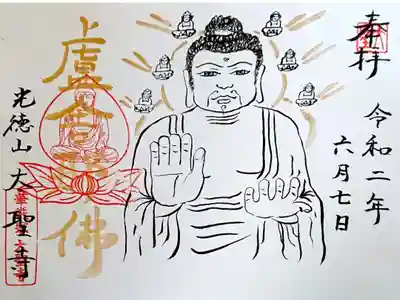 奉拝
令和二年
六月七日
盧舎那佛
光徳山
大聖寺